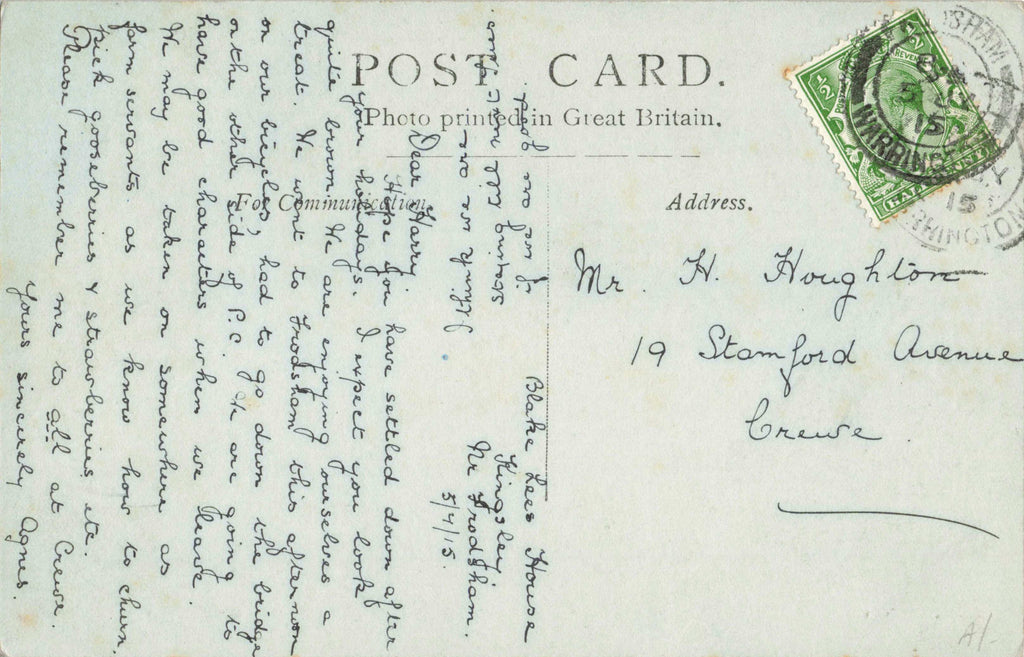 POST CARD.
Photo printed in Great Britain.
For Communication.
Address.
Blake Lees House
Kingsley
Nr Frodsham.
5/7/15.
Dear Harry
Hope you have settled down after
your holidays. I expect you look
quite brown. We are enjoying ourselves a
treat. We went to Frodsham this afternoon
on our bicycles, had to go down the bridge
on the other side of P.C. We are going to
have good characters when we leave.
We may be taken on somewhere as
farm servants as we know how to churn,
pick gooseberries & strawberries etc.
Please remember me to all at Crewe.
Yours sincerely Agnes.
we are
staying till
good
Mr. H. Houghton
19 Stamford Avenue
Crewe.
WARRINGTON
5 JY
15
HALFPENNY
1/2
REVENUE
A/-